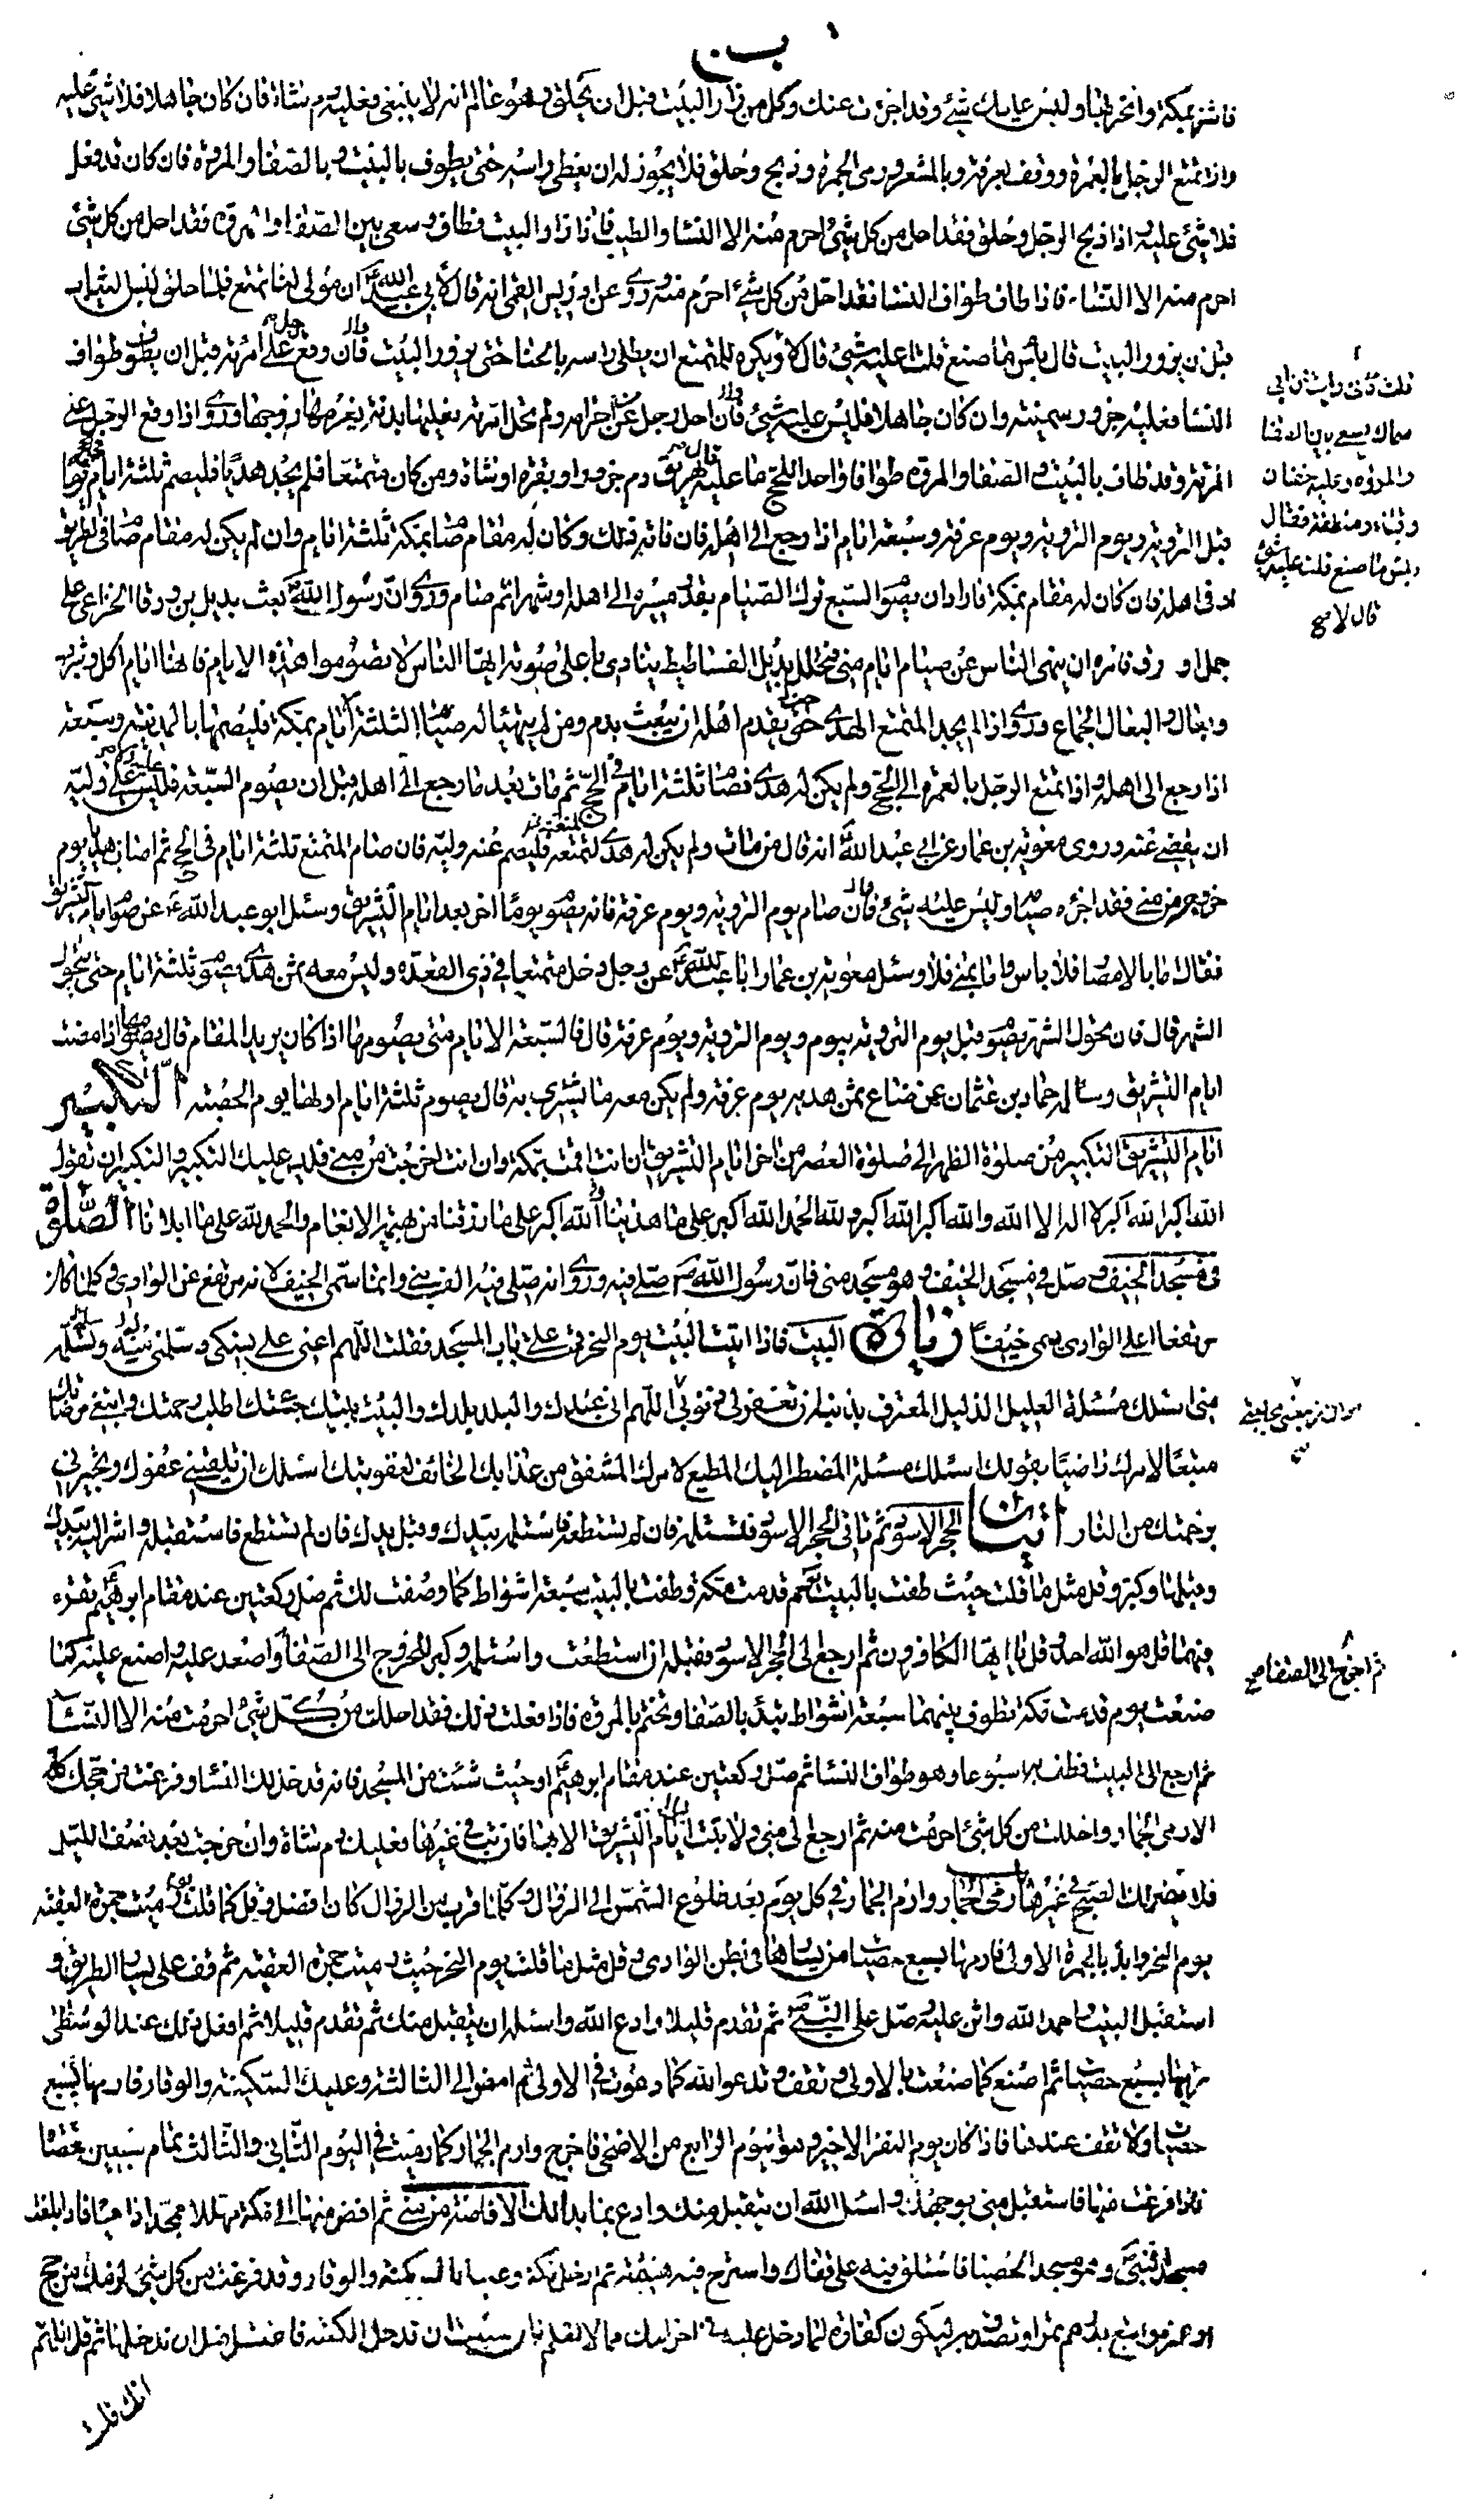 فاشتر بمكة وانحرها وليس عليك شئ وقد اجزءت عنك وكل من زار البيت قبل ان يحلق وهو عالم انه لا ينبغي فعليه دم شاة فان كان جاهلا فلا شئ عليه
واذا تمتع الرجل بالعمرة ووقف بعرفة وبالمشعر ورمى الجمرة وذبح وحلق فلا يجوز له ان يغطي راسه حتى يطوف بالبيت وبالصفا والمروة فان كان قد فعل
فلا شئ عليه واذا ذبح الرجل وحلق فقد احل من كل شئ احرم منه الا النسا والطيب فاذا زار البيت فطاف وسعى بين الصفا والمروة فقد احل من كل شئ
احرم منه الا النساء فاذا طاف طواف النسا فقد احل من كل شئ احرم منه وروى عن ادريس القمي انه قال لابي عبدالله ع ان مولى لنا تمتع فلما حلق لبس الثياب
قبل ان يزور البيت قال بئس ما صنع قلت اعليه شئ قال لا ويكره للمتمتع ان يطلي راسه بالحنا حتى يزور البيت فان وقع رجل على امرته قبل ان يطوف طواف
النسا فعليه جزور سمينة وان كان جاهلا فليس عليه شئ فان احل رجل من احرامه ولم تحل امرته فعليها بدنة يغرمها زوجها وروى اذا وقع الرجل على
امرته وقد طاف بالبيت والصفا والمروة طوافا واحدا للحج ما عليه قال يهريق دم جزور او بقرة او شاة ومن كان متمتعا فلم يجد هديا فليصم ثلثة ايام في الحج يوما
قبل التروية ويوم التروية ويوم عرفة وسبعة ايام اذا رجع الى اهله فان فاته ذلك وكان له مقام صام بمكة ثلثة ايام وان لم يكن له مقام صام في الطريق
او في اهله فان كان له مقام بمكة فاراد ان يصوم السبع ترك الصيام بقدر مسيره الى اهله او شهرا ثم صام وروى ان رسول الله ص بعث بديل بن ورقا الخزاعي على
جمل اورق فامره ان ينهى الناس عن صيام ايام منى فتخلل بديل الفساطيط ينادي باعلى صوته ايها الناس لا تصوموا هذه الايام فانها ايام اكل وشرب
وبعال والبعال الجماع وروى اذا لم يجد المتمتع الهدى حتى يقدم اهله ان يبعث بدم ومن لم يتهيا له صيام الثلثة الايام بمكة فليصمها بالمدينة وسبعة
اذا رجع الى اهله واذا تمتع الرجل بالعمرة الى الحج ولم يكن له هدى فصام ثلثة ايام في الحج ثم مات بعد ما رجع الى اهله قبل ان يصوم السبعة فليس على وليه
ان يقضي عنه وروى معوية بن عمار عن ابي عبدالله ع انه قال من مات ولم يكن له هدى لمتعته فليصم عنه وليه فان صام المتمتع ثلثة ايام في الحج ثم اصاب هديا يوم
خروجه من منى فقد اجزءه صيامه وليس عليه شئ فان صام يوم التروية ويوم عرفة فانه يصوم يوما اخر بعد ايام التشريق وسئل ابو عبدالله ع عن صوم ايام التشريق
فقال اما بالامصار فلا باس واما بمنى فلا وسئل معوية بن عمار ابا عبدالله ع عن رجل دخل متمتعا في ذي القعدة وليس معه ثمن هدى يصوم ثلثة ايام حتى يتحول
الشهر قال فان تحول الشهر يصوم قبل يوم التروية بيوم ويوم التروية ويوم عرفة قال فالسبعة الايام متى يصومها اذا كان يريد المقام قال يصومها اذا مضت
ايام التشريق وساله حماد بن عثمان عمن ضاع ثمن هديه يوم عرفة ولم يكن معه ما يشتري به قال يصوم ثلثة ايام اولها يوم الحصبة التكبير
ايام التشريق التكبير من صلوة الظهر الى صلوة العصر من اخر ايام التشريق ان انت اقمت بمكة وان انت اخرجت من منى فليس عليك التكبير والتكبير ان تقول
الله اكبر الله اكبر لا اله الا الله والله اكبر الله اكبر ولله الحمد الله اكبر على ما هدينا الله اكبر على ما رزقنا من بهيمة الانعام والحمد لله على ما ابلانا الصلوة
في مسجد الخيف وصل في مسجد الخيف وهو مسجد منى فان رسول الله ص صلى فيه وروى انه صلى فيه الف نبي وانما سمي الخيف لانه مرتفع عن الوادي وكلما كان
مرتفعا اعلى الوادي يسمى خيفا زيارة البيت فاذا اتيت البيت يوم النحر قمت على باب المسجد فقلت اللهم اعني على نسكي وسلمني له وسلمه
مني اسئلك مسئلة العليل الذليل المعترف بذنبه ان تغفر لي ذنوبي اللهم اني عبدك والبلد بلدك والبيت بيتك جئتك اطلب رحمتك وابتغي مرضاتك
متبعا لامرك راضيا بقدرك اسئلك مسئلة المضطر اليك المطيع لامرك المشفق من عذابك الخائف لعقوبتك اسئلك ان تلقيني عفوك وتجيرني
برحمتك من النار اتيان الحجر الاسود ثم تاتي الحجر الاسود فتستلمه فان لم تستطع فاستلمه بيدك وقبل يدك فان لم تستطع فاستقبله واشر اليه بيدك
وقبلها وكبر وقل مثل ما قلت حيث طفت بالبيت يوم قدمت مكة وطفت بالبيت سبعة اشواط كما وصفت لك ثم صل ركعتين عند مقام ابرهيم تقرء
فيهما قل هو الله احد وقل يا ايها الكافرون ثم ارجع الى الحجر الاسود فقبله ان استطعت واستلمه وكبر الخروج الى الصفا واصعد عليه واصنع عليه كما
صنعت يوم قدمت مكة تطوف بينهما سبعة اشواط تبدء بالصفا وتختم بالمروة فاذا فعلت ذلك فقد احللت من كل شئ احرمت منه الا النسا
ثم ارجع الى البيت فطف به اسبوعا وهو طواف النسا ثم صل ركعتين عند مقام ابرهيم او حيث شئت من المسجد فانه قد حل لك النسا وفرغت من حجك كله
الا رمي الجمار واحللت من كل شئ احرمت منه ثم ارجع الى منى ولا تبت ايام التشريق الا بها فان بت في غيرها فعليك دم شاة وان خرجت بعد نصف الليل
فلا يضرك الصبح في غيرها رمي الجمار وارم الجمار في كل يوم بعد طلوع الشمس الى الزوال وكلما قرب من الزوال كان افضل وقل كما قلت يوم رميت جمرة العقبة
يوم النحر وابدء بالجمرة الاولى فارمها بسبع حصيات من يسارها في بطن الوادي وقل مثل ما قلت يوم النحر حيث رميت جمرة العقبة ثم قف على يسار الطريق و
استقبل البيت احمد الله واثن عليه وصل على النبي ص ثم تقدم قليلا وادع الله واسئله ان يتقبل منك ثم تقدم قليلا ثم افعل ذلك عند الوسطى
ترميها بسبع حصيات ثم اصنع كما صنعت بالاولى وتقف وتدعو الله كما دعوت في الاولى ثم امض الى الثالثة وعليك السكينة والوقار فارمها بسبع
حصيات ولا تقف عندها فاذا كان يوم النفر الاخير وهو اليوم الرابع من الاضحى فاخرج وارم الجمار كما رميت في اليوم الثاني والثالث تمام سبعين حصاة
فاذا فرغت منها فاستقبل منى بوجهك واسئل الله ان يتقبل منك وادع بما بدا لك الافاضة من منى ثم افض منها الى مكة مهللا ممجدا داعيا فاذا بلغت
مسجد النبي وهو مسجد الحصبا فاستلق فيه على قفاك واسترح فيه هنيئة ثم ادخل مكة وعليك السكينة والوقار وقد فرغت من كل شئ لزمك من حج
او عمرة وابتع بدرهم تمرا وتصدق به ليكون كفارة لما دخل عليك في احرامك مما لا تعلم فان احببت ان تدخل الكعبة فاغتسل قبل ان تدخلها ثم قل اللهم
انك قلت
قلت
والمروة وعليه خفان
وقباء ومنطقة فقال
بئس ما صنع قلت عليه شئ
قال لا صح
ثم اخرج الى الصفا صح